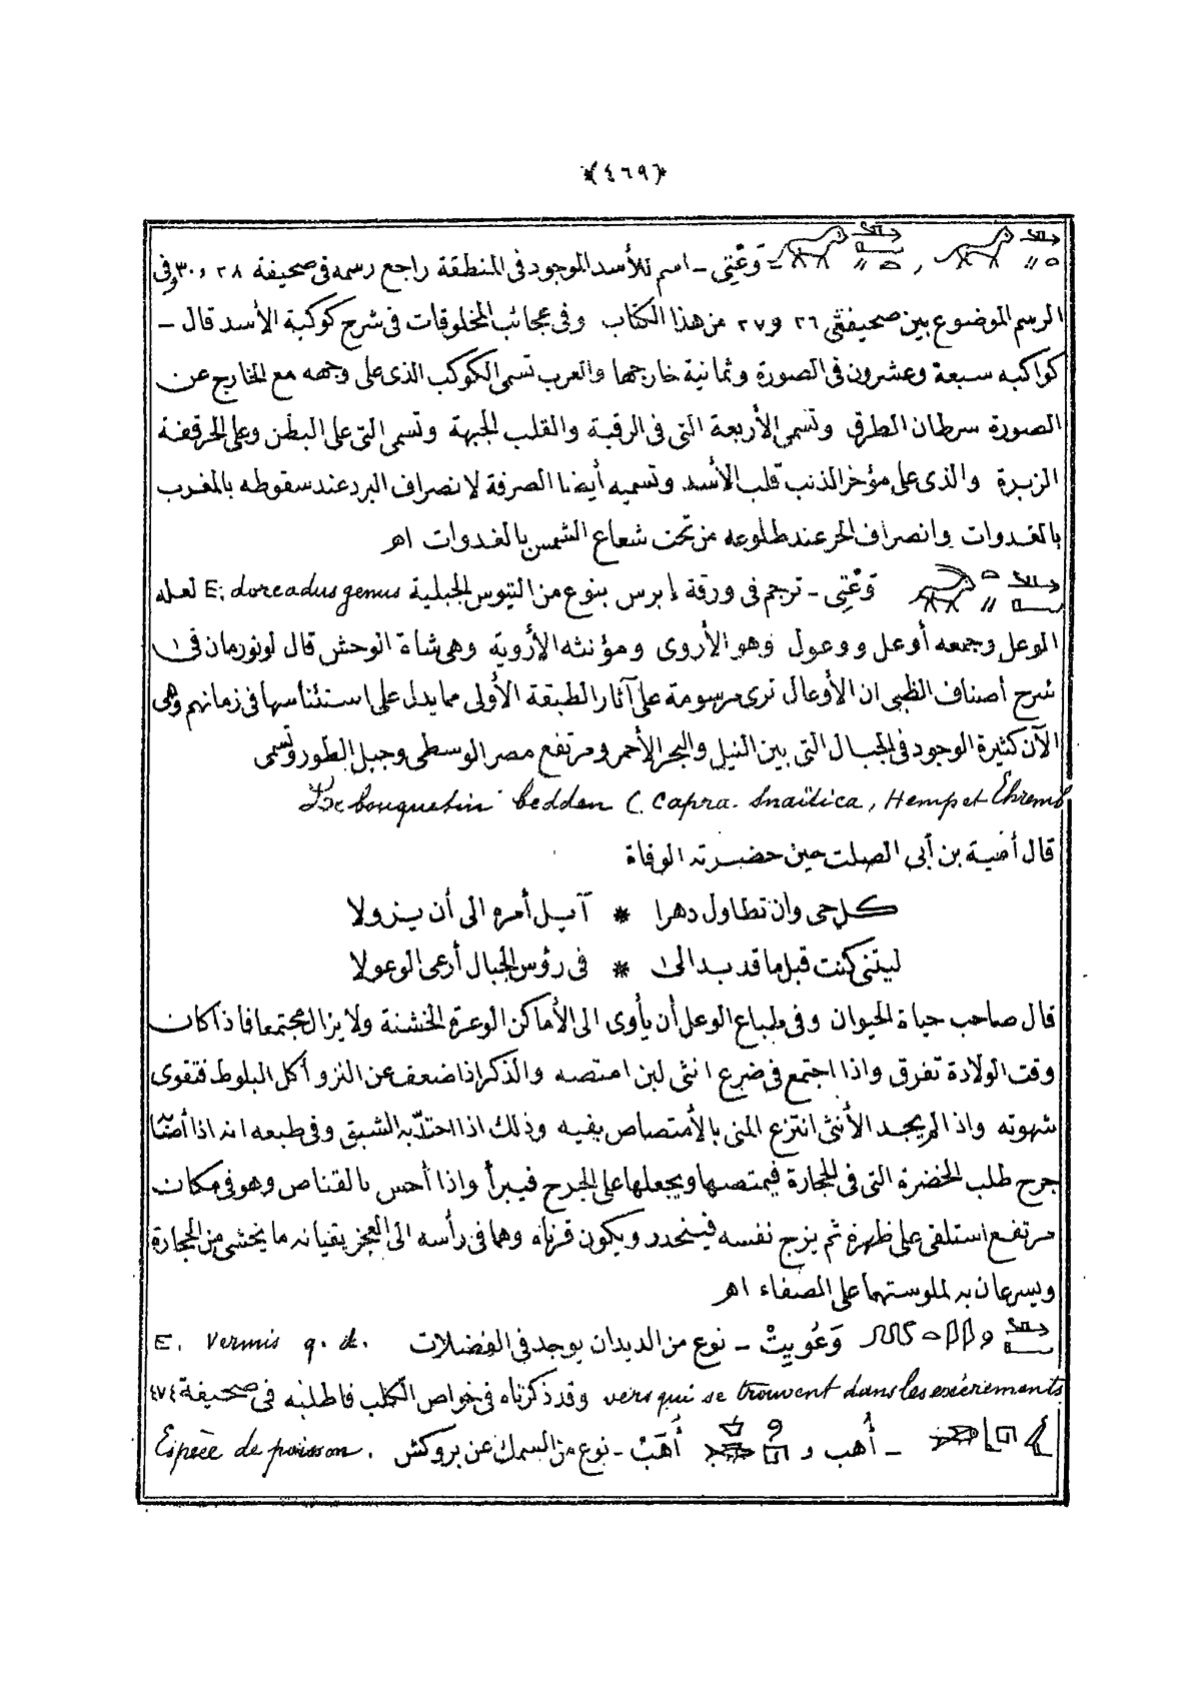 *(٤٦٩)*
= وَعْتِى - اسم للأسد الموجود فى المنطقة راجع رسمه فى صحيفة ٢٨ و ٣٠ وفى
الرسم الموضوع بين صحيفتى ٢٦ و ٢٧ من هذا الكتاب وفى عجائب المخلوقات فى شرح كوكبة الأسد قال -
كواكبه سبعة وعشرون فى الصورة وثمانية خارجها والعرب تسمى الكوكب الذى على وجهه مع الخارج عن
الصورة سرطان الطرق وتسمى الأربعة التى فى الرقبة والقلب الجبهة وتسمى التى على البطن وعلى الحرقفة
الزبرة والذى على مؤخر الذنب قلب الأسد وتسميه أيضا الصرفة لانصراف البرد عند سقوطه بالمغرب
بالغدوات وانصراف الحر عند طلوعه من تحت شعاع الشمس بالغدوات اهـ
وَعْتِى - ترجم فى ورقة إبرس بنوع من التيوس الجبلية E; dorcadus genus لعله
الوعل وجمعه أوعل ووعول وهو الأروى ومؤنثه الأروية وهى شاة الوحش قال لونورمان فى
شرح أصناف الظبى ان الأوعال ترى مرسومة على آثار الطبقة الأولى مما يدل على استئناسها فى زمانهم وهى
الآن كثيرة الوجود فى الجبال التى بين النيل والبحر الأحمر ومرتفع مصر الوسطى وجبل الطور وتسمى
Le bouquetin bedden (. Capra. Snaïtica, Hemp et Ehremb
قال أمية بن أبى الصلت حين حضرته الوفاة
كل حى وان تطاول دهرا * آيل أمره الى أن يزولا
ليتنى كنت قبل ما قد بدا لى * فى رؤس الجبال أرعى الوعولا
قال صاحب حياة الحيوان وفى طباع الوعل أن يأوى الى الأماكن الوعرة الخشنة ولا يزال مجتمعا فاذا كان
وقت الولادة تفرق واذا اجتمع فى ضرع انثى لبن امتصه والذكر اذا ضعف عن النزو أكل البلوط فتقوى
شهوته واذا لم يجد الأنثى انتزع المنى بالأمتصاص بفيه وذلك اذا احتد به الشبق وفى طبعه انه اذا أصابه
جرح طلب الخضرة التى فى الحجارة فيمتصها ويجعلها على الجرح فيبرأ واذا أحس بالقناص وهو فى مكان
مرتفع استلقى على ظهره ثم يزج نفسه فينحدر ويكون قرناه وهما فى رأسه الى العجز يقيانه ما يخشى من الحجارة
ويسرعان به لملوستهما على الصفاء اهـ
وَعُوِيتْ - نوع من الديدان يوجد فى الفضلات E. vermis q. d.
vers qui se trouvent dans les excréments وقد ذكرناه فى خواص الكلب فاطلبه فى صحيفة ٤٧٤
- أُهب و أُهَبْ - نوع من السمك عن بروكش Espèce de poisson.